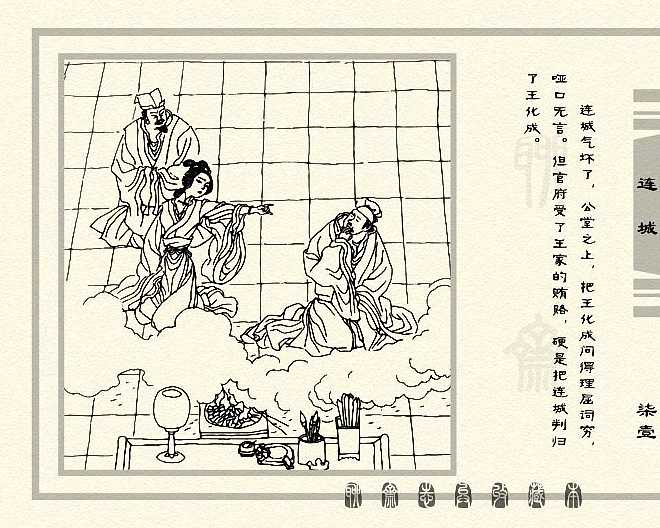 连城气坏了，公堂之上，把王化成问得理屈词穷，
哑口无言。但官府受了王家的贿赂，硬是把连城判归
了王化成。
连城
柒壹
聊斋志异收藏本